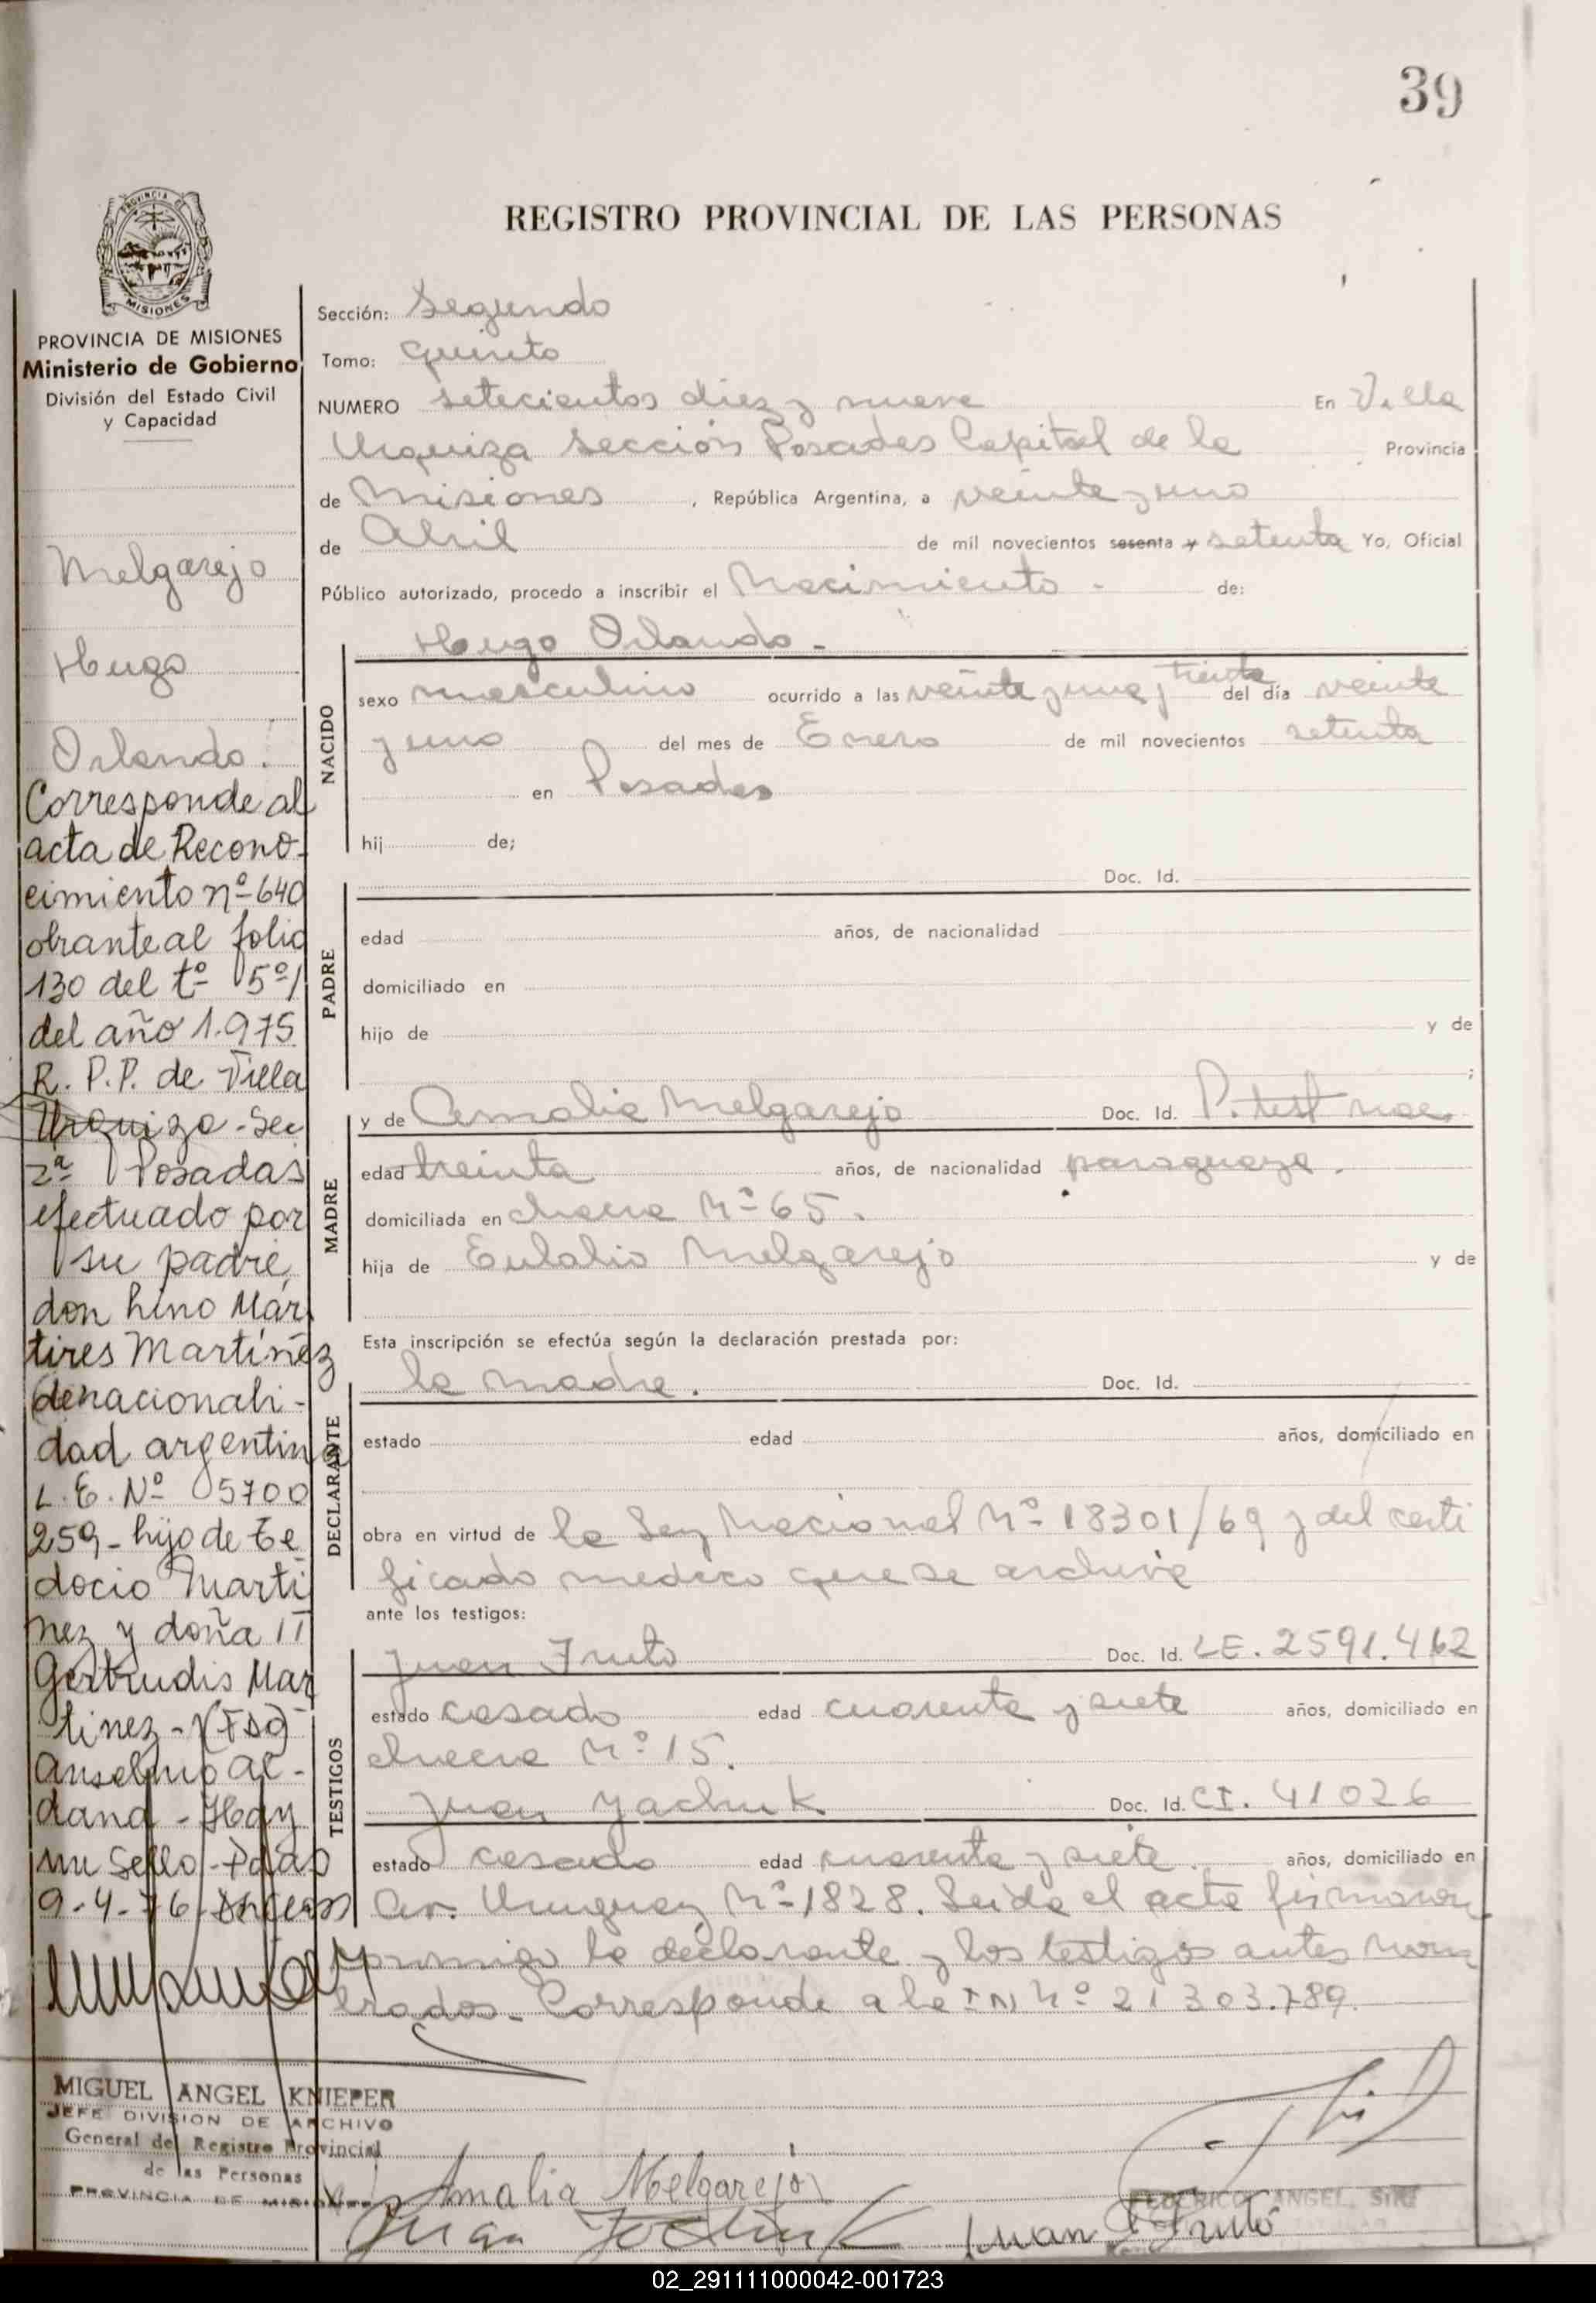 39
REGISTRO PROVINCIAL DE LAS PERSONAS
PROVINCIA DE MISIONES
Ministerio de Gobierno
División del Estado Civil
y Capacidad
Melgarejo
Hugo
Orlando.
Corresponde al
acta de Recono-
cimiento nº 640
obrante al folio
130 del tº 5º
del año 1.975
R. P.P. de Villa
Urquiza - Sec
2ª Posadas
efectuado por
su padre,
don Lino Már
tires Martínez
de nacionali-
dad argentina
L.E. Nº 5700
259 - hijo de Te
docio Martí
nez y doña
Gertrudis Mar
tinez - (Fdo)
Anselmo Al-
dana - Hay
un Sello - Pdas
9-4-76
MIGUEL ANGEL KNIEPER
JEFE DIVISION DE ARCHIVO
General del Registro Provincial
de las Personas
PROVINCIA DE MISIONES
Sección: Segundo
Tomo: Quinto
NUMERO setecientos diez y nueve En Villa
Urquiza Sección Posadas Capital de la Provincia
de Misiones, República Argentina, a veinte y uno
de Abril de mil novecientos sesenta y setenta Yo, Oficial
Público autorizado, procedo a inscribir el Nacimiento - de:
Hugo Orlando -
NACIDO
sexo masculino ocurrido a las veinte y una y treinta del día veinte
y uno del mes de Enero de mil novecientos setenta
en Posadas
hij de;
Doc. Id.
PADRE
edad años, de nacionalidad
domiciliado en
hijo de y de
;
y de Amalia Melgarejo Doc. Id. P. test nac.
MADRE
edad treinta años, de nacionalidad paraguaya.
domiciliada en chacra Nº 65.
hija de Eulalio Melgarejo y de
Esta inscripción se efectúa según la declaración prestada por:
la madre. Doc. Id.
DECLARANTE
estado edad años, domiciliado en
obra en virtud de la Ley Nacional Nº 18301/69 y del certi
ficado medico que se archiva
ante los testigos:
Juan Fruto Doc. Id. LE. 2591.462
TESTIGOS
estado casado edad cuarenta y siete años, domiciliado en
chacra Nº 15.
Juan Yachuk Doc. Id. CI. 41026
estado casado edad cuarenta y siete. años, domiciliado en
Av. Uruguay Nº 1828. Leida el acta firmaron
conmigo la declarante y los testigos antes nom
brados. Corresponde a la IN Nº 21303.789.
Amalia Melgarejo
FEDERICO ANGEL SIRI
Juan Juan Fruto
02_291111000042-001723